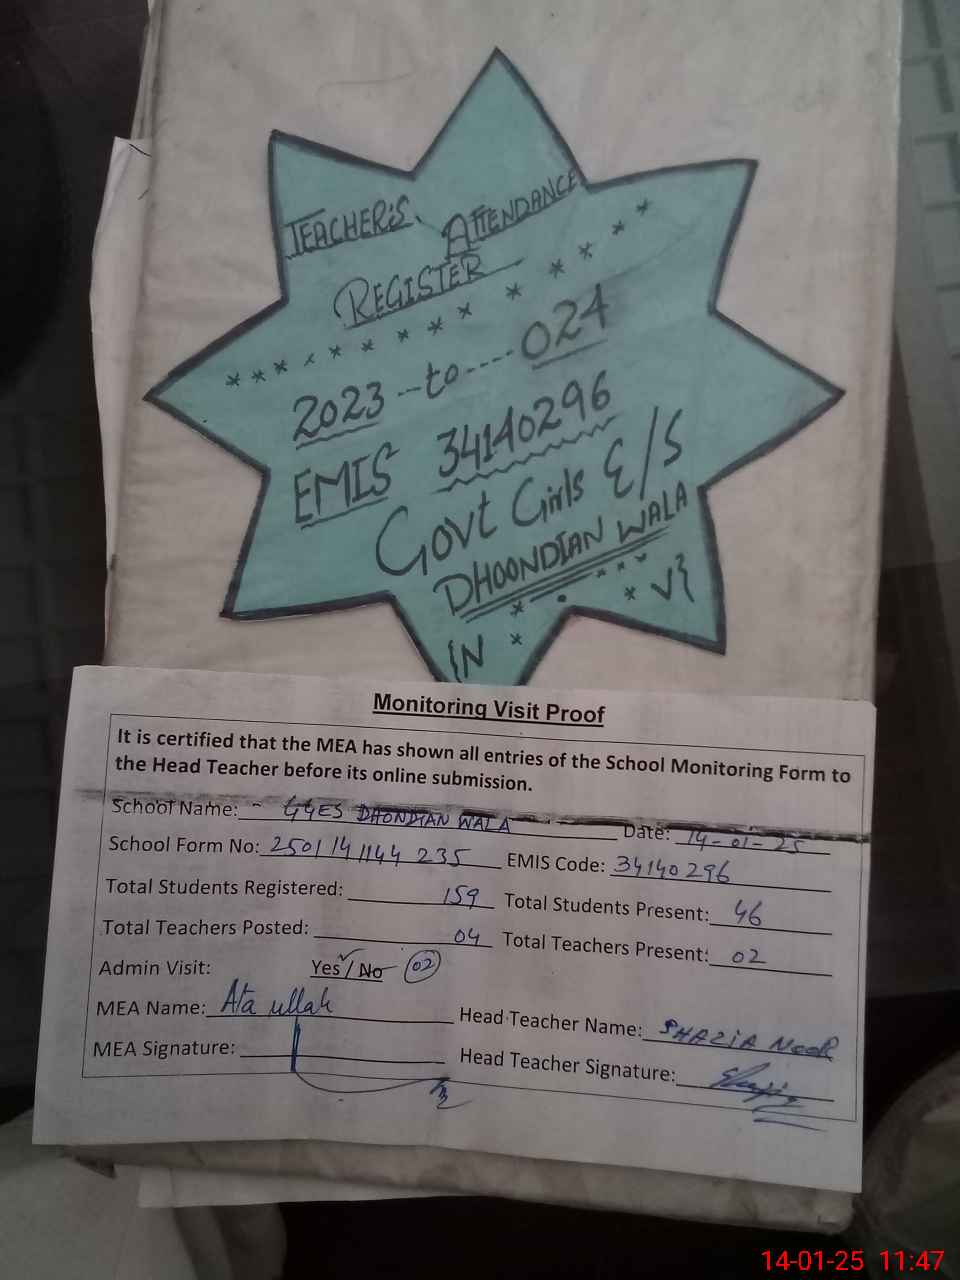 TEACHER'S ATTENDANCE
REGISTER
2023 --to---- 024
EMIS 34140296
Govt Girls E/S
DHOONDIAN WALA
Monitoring Visit Proof
It is certified that the MEA has shown all entries of the School Monitoring Form to
the Head Teacher before its online submission.
School Name: GGES DHONDIAN WALA Date: 14-01-25
School Form No: 2501141144235 EMIS Code: 34140296
Total Students Registered: 159 Total Students Present: 46
Total Teachers Posted: 04 Total Teachers Present: 02
Admin Visit: Yes / No 02
MEA Name: Ata ullah Head Teacher Name: SHAZIA NOOR
MEA Signature: Head Teacher Signature:
14-01-25 11:47